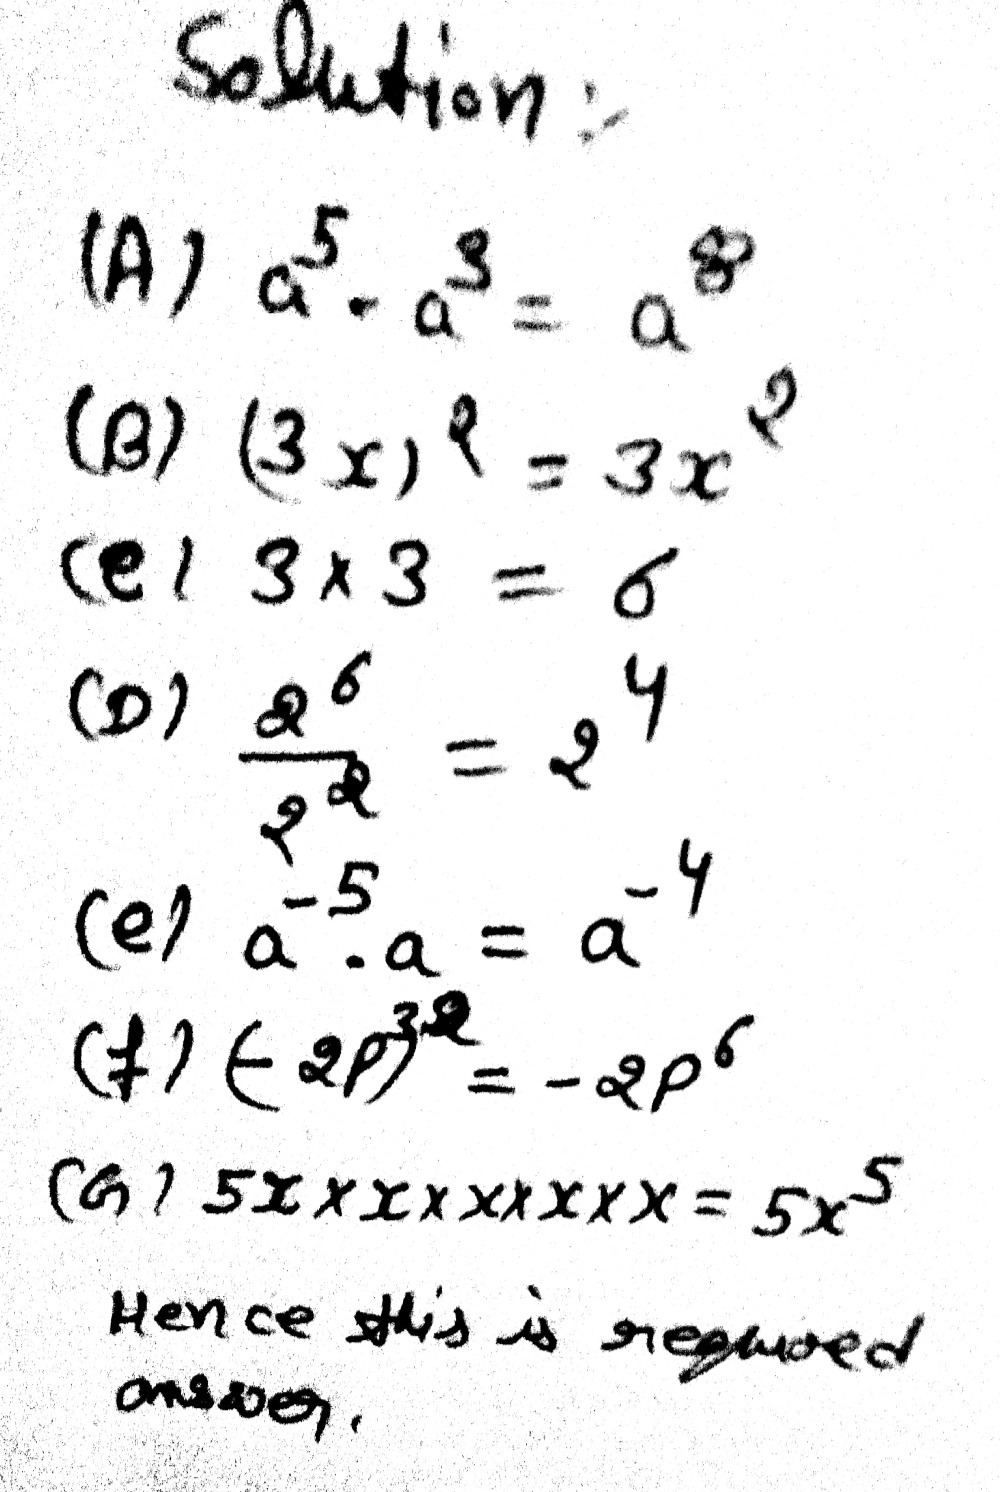 Solution :-
(A) a⁵ · a³ = a⁸
(B) (3x)² = 3x²
(c) 3 × 3 = 6
(D) 2⁶/2² = 2⁴
(e) a⁻⁵ · a = a⁻⁴
(f) (-2P)³² = -2P⁶
(G) 5x × x × x × x × x = 5x⁵
Hence this is required
answer.